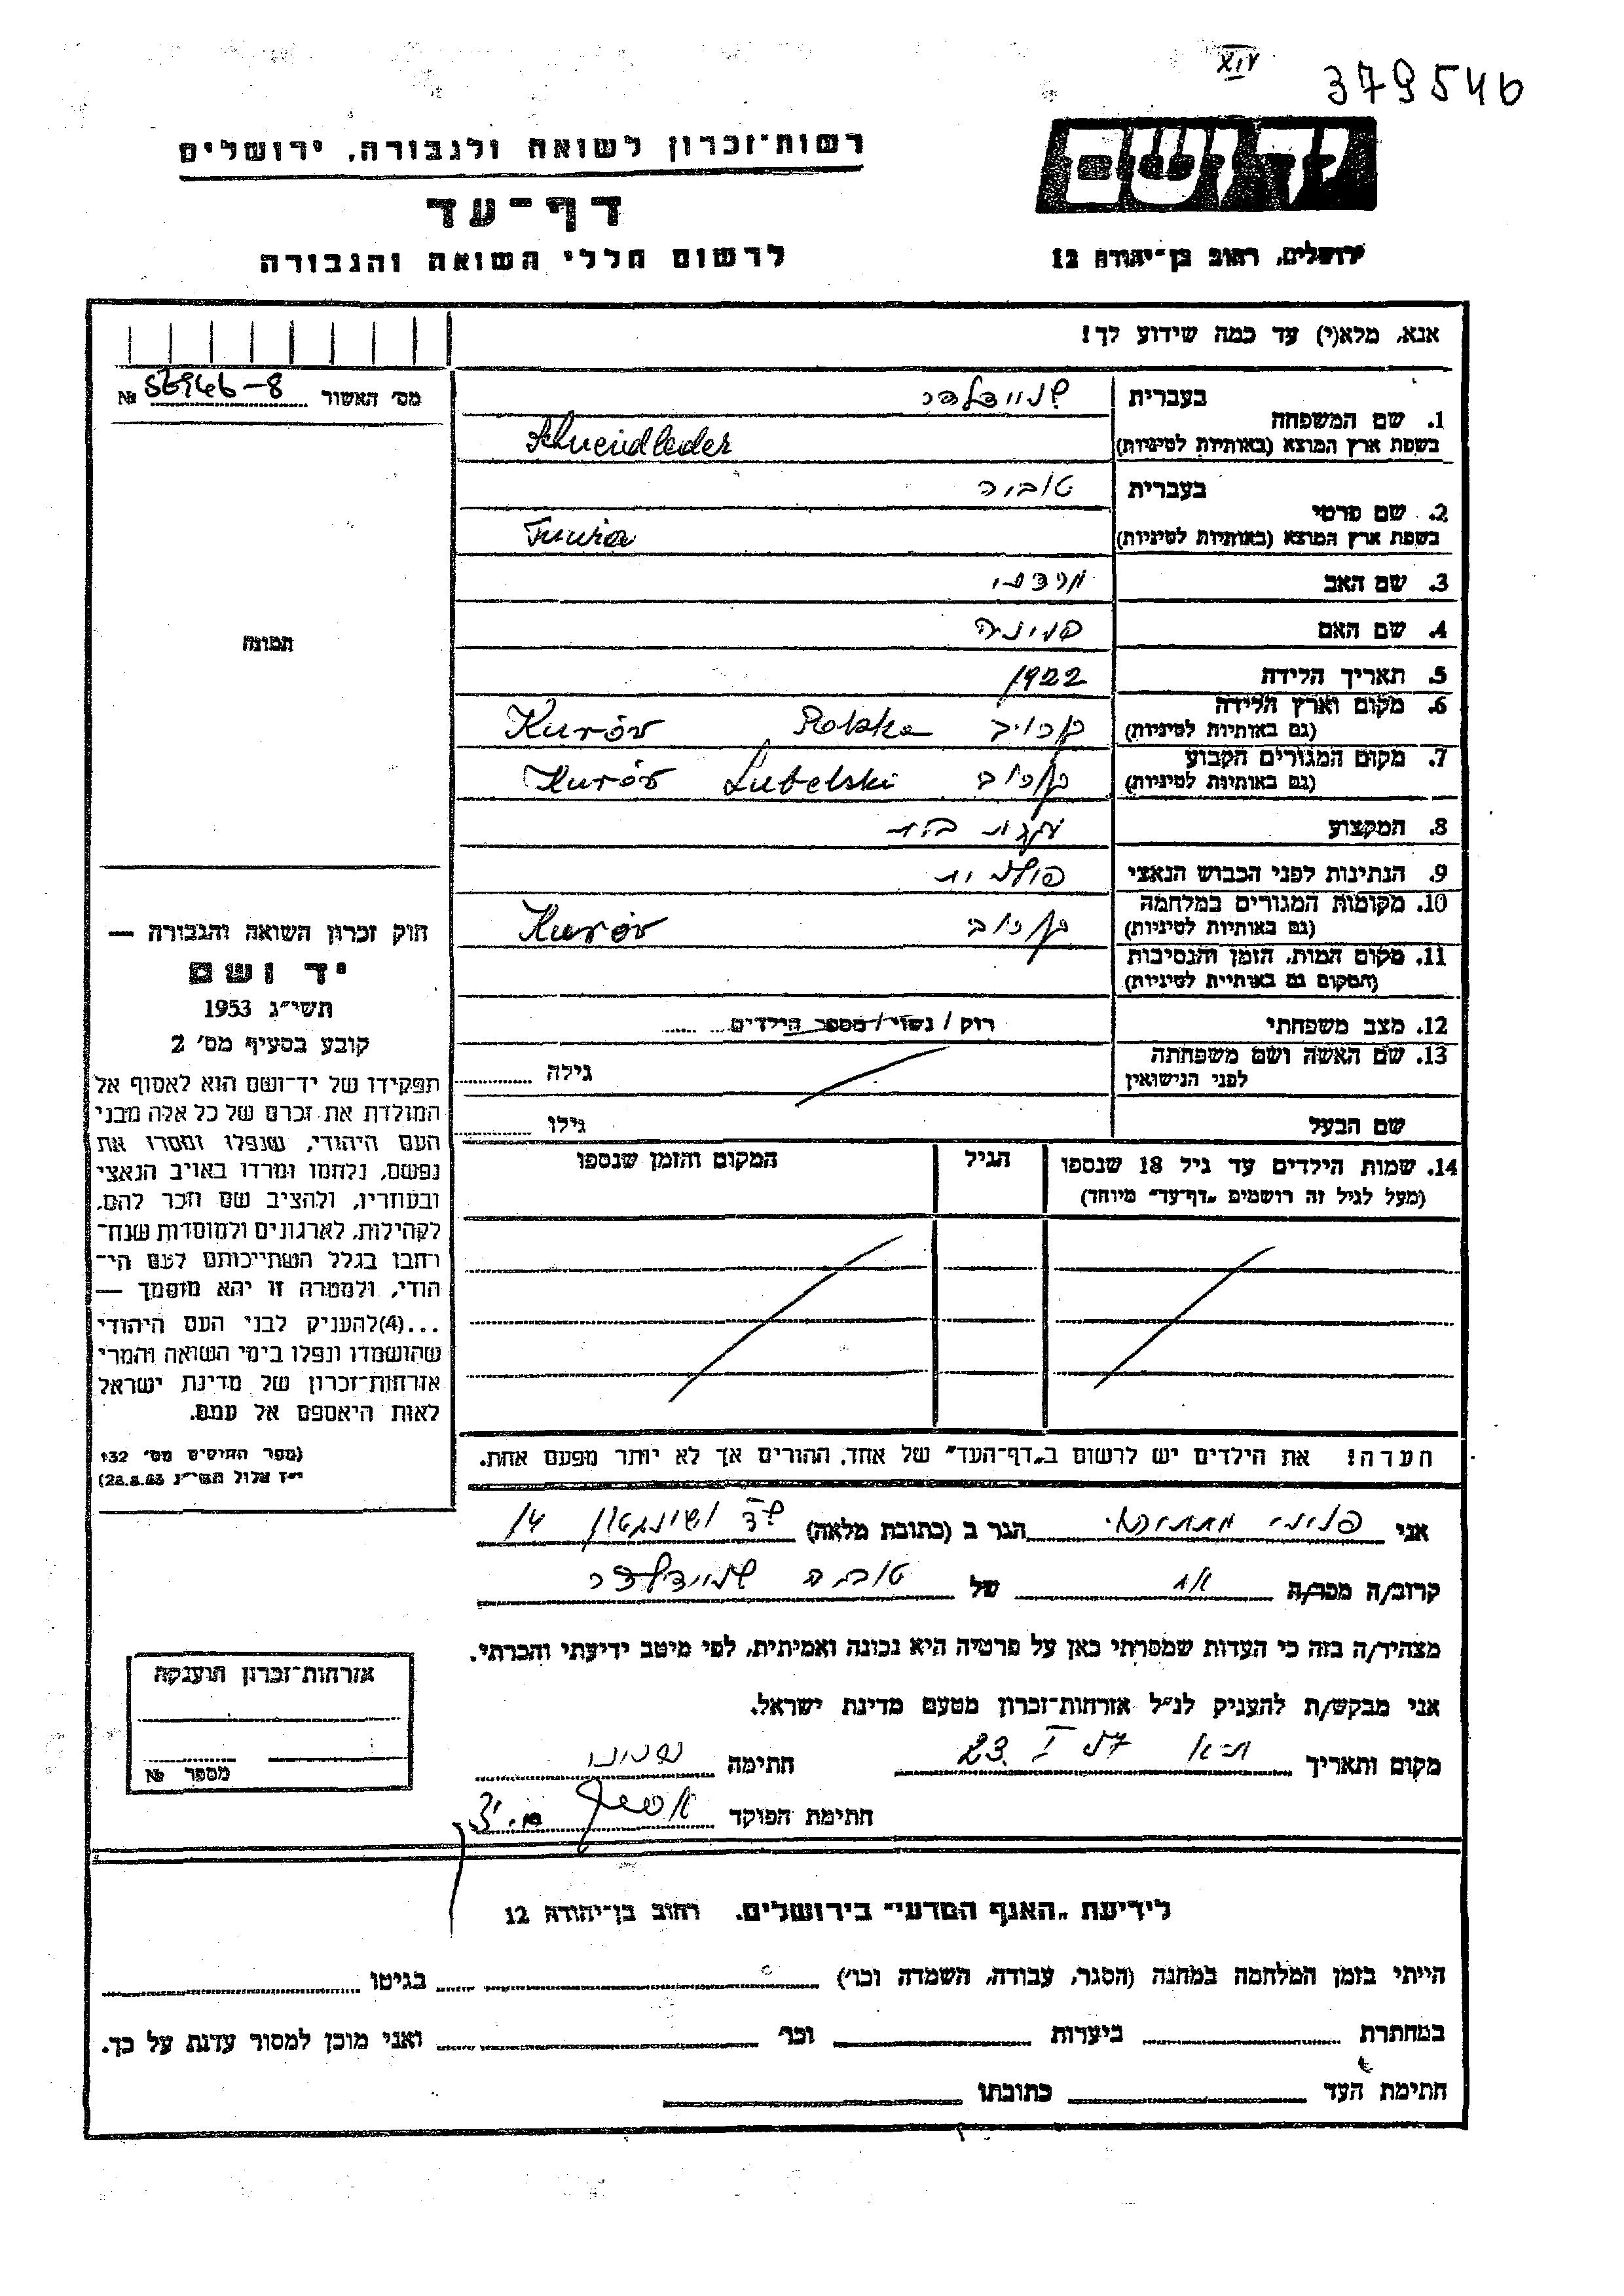 XIV
379546
יד ושם
ירושלים, רחוב בן־יהודה 12
רשות־זכרון לשואה ולגבורה, ירושלים
דף־עד
לרשום חללי השואה והגבורה
אנא, מלא(י) עד כמה שידוע לך!
מס׳ האשור № 56946-8
תמונה
1. שם המשפחה
בעברית שניידלדר
בשפת ארץ המוצא (באותיות לטיניות) Schneidleder
2. שם פרטי
בעברית טוביה
בשפת ארץ המוצא (באותיות לטיניות)
3. שם האב מרדכי
4. שם האם
5. תאריך הלידה 1922
6. מקום וארץ הלידה
(גם באותיות לטיניות) קורוב Polska Kurów
7. מקום המגורים הקבוע
(גם באותיות לטיניות) קורוב Lubelski Kurów
8. המקצוע
9. הנתינות לפני הכבוש הנאצי פולנית
10. מקומות המגורים במלחמה
(גם באותיות לטיניות) קורוב Kurów
11. מקום המות, הזמן והנסיבות
(המקום גם באותיית לטיניות)
12. מצב משפחתי רוק / נשוי / מספר הילדים
13. שם האשה ושם משפחתה
לפני הנישואין גילה
שם הבעל גילו
14. שמות הילדים עד גיל 18 שנספו
(מעל לגיל זה רושמים „דף־עד” מיוחד)
הגיל
המקום והזמן שנספו
הערה! את הילדים יש לרשום ב„דף־העד” של אחד, ההורים אך לא יותר מפעם אחת.
חוק זכרון השואה והגבורה —
יד ושם
תשי״ג 1953
קובע בסעיף מס׳ 2
תפקידו של יד־ושם הוא לאסוף אל
המולדת את זכרם של כל אלה מבני
העם היהודי, שנפלו ומסרו את
נפשם, נלחמו ומרדו באויב הנאצי
ובעוזריו, ולהציב שם וזכר להם,
לקהילות, לארגונים ולמוסדות שנח־
רחבו בגלל השתייכותם לעם הי־
הודי, ולמטרה זו יהא מוסמך —
...(4)להעניק לבני העם היהודי
שהושמדו ונפלו בימי השואה והמרי
אזרחות־זכרון של מדינת ישראל
לאות היאספם אל עמם.
(ספר החוקים מס׳ 132
י״ז אלול תשי״ג 28.8.53)
אני הגר ב (כתובת מלאה) שד ושינגטון 14
קרוב/ה מכר/ה אח של טוביה שניידלדר
מצהיר/ה בזה כי העדות שמסרתי כאן על פרטיה היא נכונה ואמיתית, לפי מיטב ידיעתי והכרתי.
אני מבקש/ת להעניק לנ״ל אזרחות־זכרון מטעם מדינת ישראל.
מקום ותאריך ת-א 23. I 57 חתימה
חתימת הפוקד
אזרחות־זכרון הוענקה
מספר №
לידיעת „האגף המדעי” בירושלים. רחוב בן־יהודה 12
הייתי בזמן המלחמה במחנה (הסגר, עבודה, השמדה וכו׳) בגיטו
במחתרת ביערות וכו׳ ואני מוכן למסור עדות על כך.
חתימת העד כתובתו